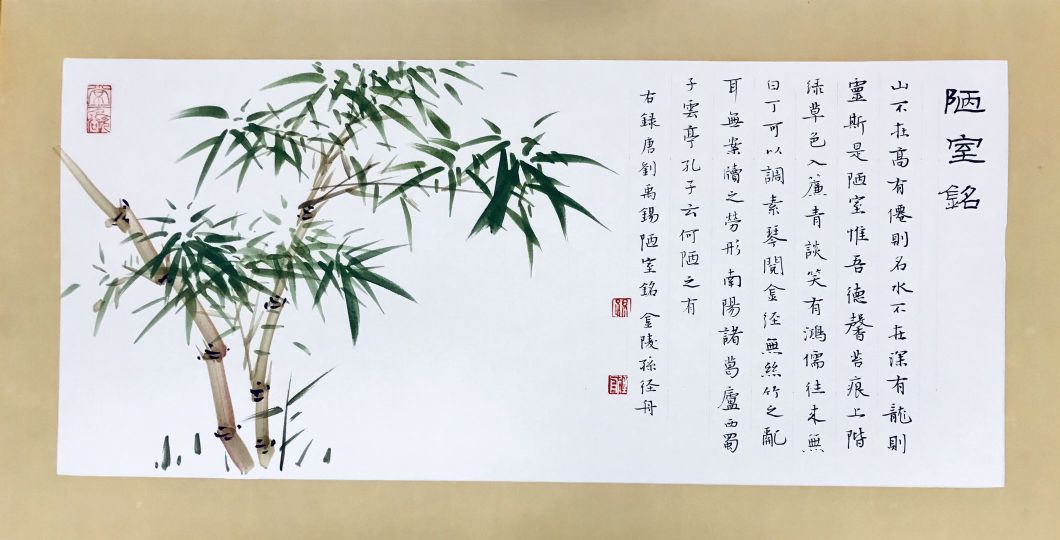 陋室銘
山不在高有僊則名水不在深有龍則
靈斯是陋室惟吾德馨苔痕上階
緑草色入簾青談笑有鴻儒往来無
白丁可以調素琴閱金经無絲竹之亂
耳無案牘之勞形南陽諸葛廬西蜀
子雲亭孔子云何陋之有
右録唐劉禹錫陋室銘 金陵孫经舟